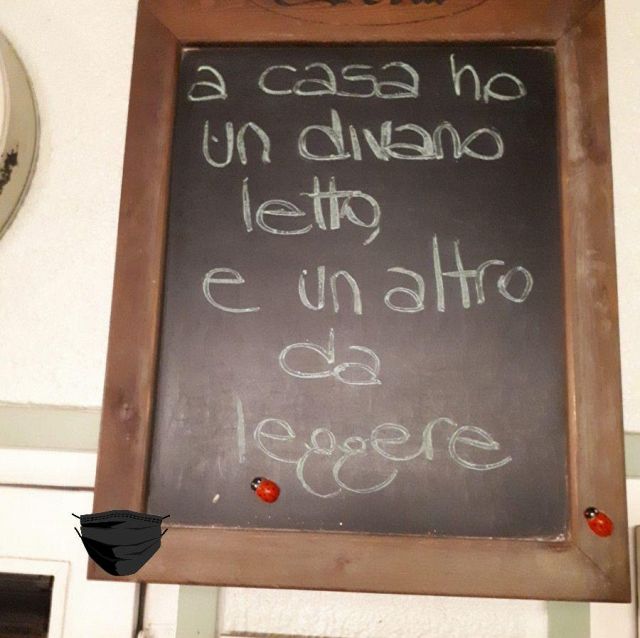 a casa ho
un divano
letto,
e un altro
da
leggere